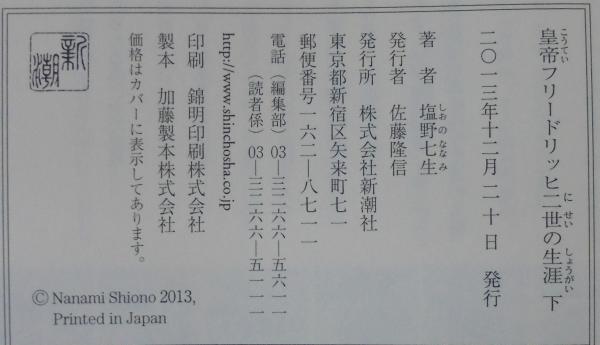 皇帝フリードリッヒ二世の生涯 下
こうてい
に せい
しょうがい
二〇一三年十二月二十日 発行
著者 塩野七生
しおの ななみ
発行者 佐藤隆信
発行所 株式会社新潮社
東京都新宿区矢来町七一
郵便番号一六二―八七一一
電話（編集部）03―三二六六―五六一一
（読者係）03―三二六六―五一一一
http://www.shinchosha.co.jp
印刷 錦明印刷株式会社
製本 加藤製本株式会社
価格はカバーに表示してあります。
新潮
© Nanami Shiono 2013,
Printed in Japan